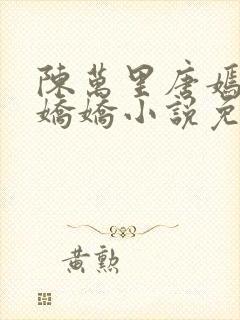 陳萬里唐嫣
嬌嬌小說免
黃勲